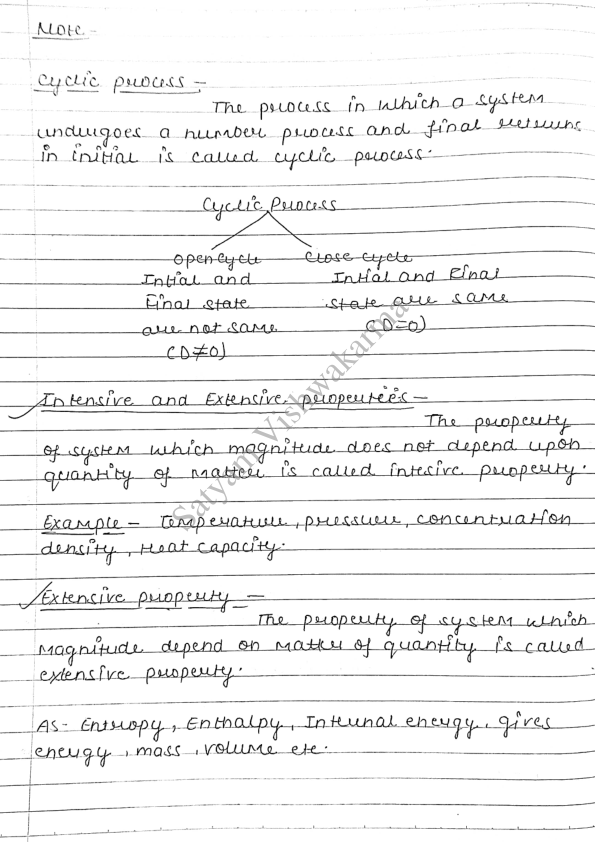 Note -
Cyclic process -
The process in which a system
undergoes a number process and final returns
in initial is called cyclic process.
Cyclic Process
Open Cycle Close cycle
Intial and Intial and Final
Final state state are same
are not same (D=0)
(D≠0)
Intensive and Extensive properties -
The property
of system which magnitude does not depend upon
quantity of matter is called intesive property.
Example - Temperature, pressure, concentration
density, Heat capacity.
Extensive property -
The property of system which
magnitude depend on matter of quantity is called
extensive property.
As - Entropy, Enthalpy, Internal energy, gives
energy, mass, volume etc.
Satyam Vishwakarma